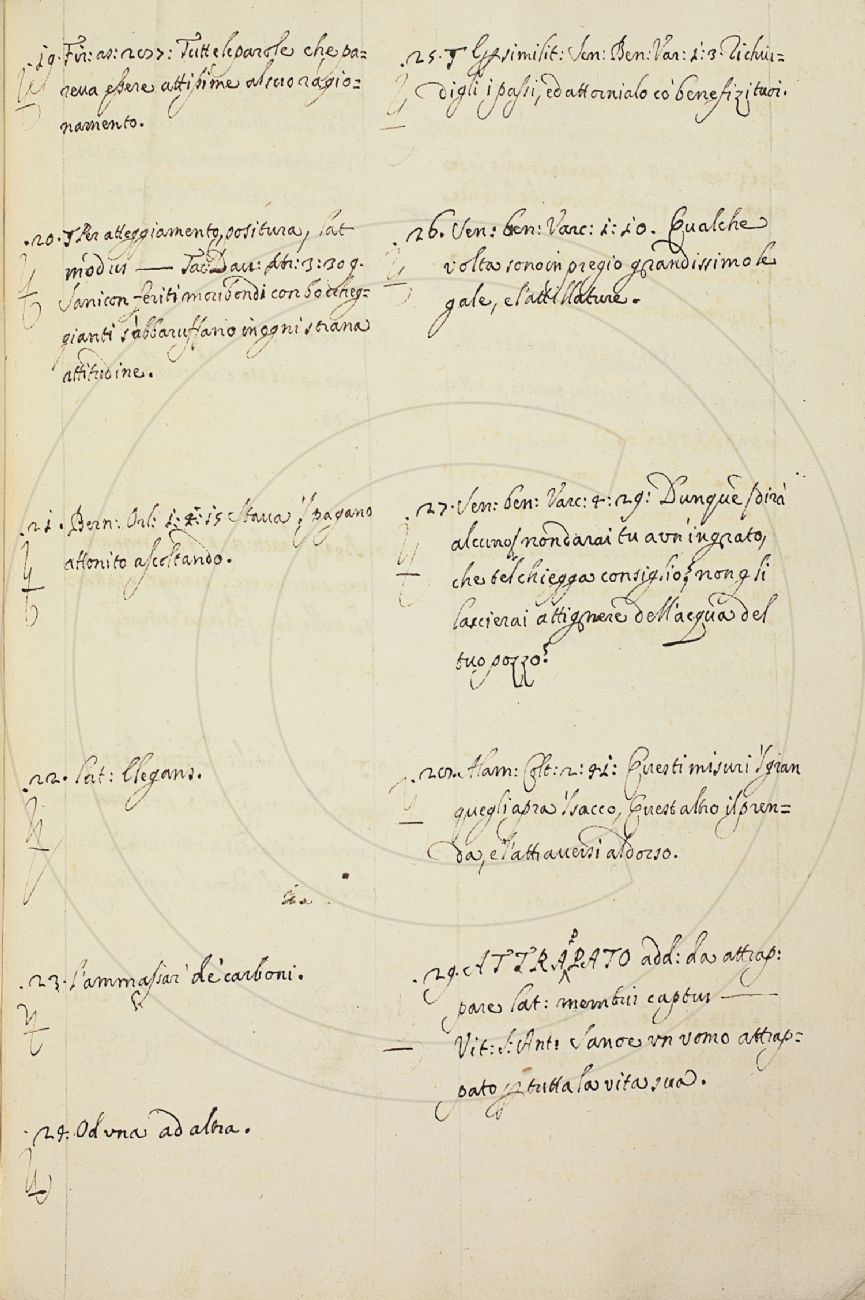 .19. Fir: as: 277: Tutte le parole che pa=
reva essere attissime al suo ragio=
namento.
.20. ¶ Per atteggiamento, positura, lat
modus — Tac: Dav: str: 3: 309.
Sani con feriti moribondi con boccheg=
gianti s'abbaruffano in ogni strana
attitudine.
.21. Bern: Orl: 1: 4: 15 Stava il pagano
attonito ascoltando.
.22. Lat: Elegans.
.23. L'ammassar de' carboni.
.24. Od una ad altra.
.25. ¶ Per similit: Sen: Ben: Var: 1: 3. Richiu=
digli i passi, ed attornialo cō benefizi tuoi.
.26. Sen: ben: Varc: 1: 10. Qualche
volta sono in pregio grandissimo le
gale, e l'attillature.
.27. Sen: ben: Varc: 4: 29: Dunque (dirà
alcuno) non darai tu a un' ingrato,
che te l chiegga consiglio? non gli
lascierai attignere dell'acqua del
tuo pozzo?
.28. Alam: Colt: 2: 41: Questi misuri il gran
quegli apra il sacco, Quest altro il pren=
da, e l'attraversi al dorso.
.29. ATTRAPATO add: da attrap:
p
pare lat: membris captus —
Vit: S: Ant: Sanoe un uomo attrap=
pato per tutta la vita sua.